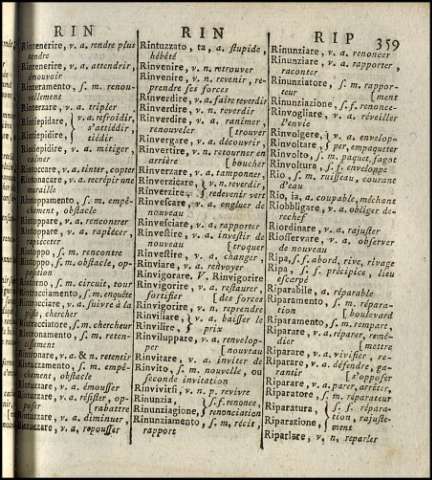 RIN RIN RIP 359
Rintenerire, v. a. rendre plus
tendre
Rintenerire, v. a. attendrir,
émouvoir
Rinteramento, s. m. renou-
vellement
Rinterzare, v. a. tripler
Rintiepidare, } v. a. refroidir,
Rintiepidire, } s'attiédir,
tiédir
v. a. mitiger,
Rintoccare, v. a. tinter, copter
Rintonacare, v. a. recrépir une
muraille
Rintoppamento, s. m. empê-
chement, obstacle
Rintoppare, v. a. rencontrer
Rintoppare, v. a. rapiécer,
rapieceter
Rintoppo, s. m. rencontre
Rintoppo, s. m. obstacle, op-
s. m. circuit, tour
s. m. enquête
v. a. suivre à la
piste, chercher
s. m. chercheur
s. m. reten-
tissement
Rintronare, v. a. & n. retentir
Rintuzzamento, s. m. em-
pêchement, obstacle
Rintuzzare, v. a. émousser
Rintuzzare, v. a. résister, op-
poser [rabattre
Rintuzzare, v. a. diminuer,
Rintuzzare, v. a. repousser
Rintuzzato, ta, a. stupide,
hébété
Rinvenire, v. n. retrouver
Rinvenire, v. n. revenir, re-
prendre ses forces
Rinverdire, v. a. faire reverdir
Rinverdire, v. n. reverdir
Rinverdire, v. a. ranimer,
renouveler [trouver
Rinvergare, v. a. découvrir,
Rinvertire, v. n. retourner en
arrière [boucher
Rinverzare, v. a. tamponner,
Rinverzicare, } v. n. reverdir,
Rinverzire, } redevenir vert
Rinvescare, v. a. engluer de
nouveau
Rinvesciare, v. a. rapporter
Rinvestire, v. a. investir de
nouveau [troquer
Rinvestire, v. a. changer,
Rinviare, v. a. renvoyer
Rinvigorare, V. Rinvigorire
Rinvigorire, v. a. restaurer,
fortifier [des forces
Rinvigorire, v. n. reprendre
Rinviliare, } v. a. baisser le
Rinvilire, } prix
Rinviluppare, v. a. renvelop-
per [nouveau
Rinvitare, v. a. inviter de
Rinvito, s. m. nouvelle, ou
seconde invitation
Rinvivirsi, v. n. p. revivre
Rinunzia, } s. f. renonce,
Rinunziagione, } renonciation
Rinunziamento, s. m. récit,
rapport
Rinunziare, v. a. renoncer
Rinunziare, v. a. rapporter,
raconter
Rinunziatore, s. m. rappor-
teur [ment
Rinunziazione, s. f. renonce-
Rinvogliare, v. a. réveiller
l'envie
Rinvolgere, } v. a. envelop-
Rinvoltare, } per, empaqueter
Rinvolto, s. m. paquet, fagot
Rinvoltura, s. f. enveloppe
Rio, s. m. ruisseau, courant
d'eau
Rio, ia, a. coupable, méchant
Riobbligare, v. a. obliger de-
rechef
Riordinare, v. a. rajuster
Riosservare, v. a. observer
de nouveau
Ripa, s. f. abord, rive, rivage
Ripa, s. f. précipice, lieu
escarpé
Riparabile, a. réparable
Riparamento, s. m. répara-
tion [boulevard
Riparamento, s. m. rempart,
Riparare, v. a. réparer, remé-
dier [mettre
Riparare, v. a. vivifier, re-
Riparare, v. a. défendre, ga-
rantir [s'opposer
Riparare, v. a. parer, arrêter,
Riparatore, s. m. réparateur
Riparatura, } s. f. répara-
Riparazione, } tion, rajuste-
ment
Riparlare, v. n. reparler